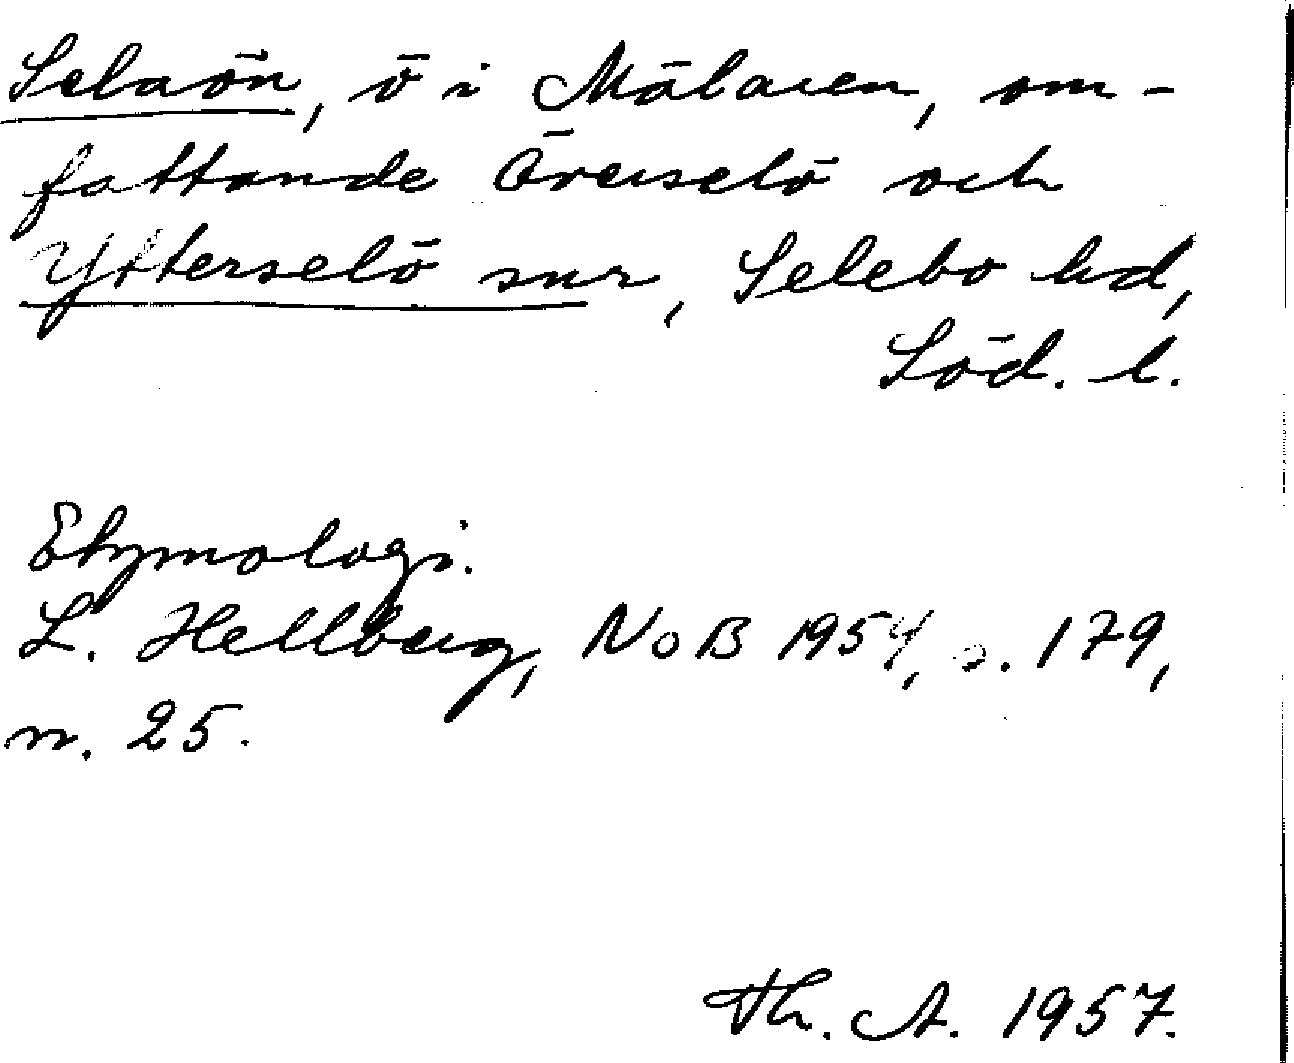 Selaön, ö i Mälaren, om-
fattande Överselö och
Ytterselö snr, Selebo hd,
Söd. l.
Etymologi.
L. Hellberg, NoB 1954, s. 179,
n. 25.
Th. A. 1957.